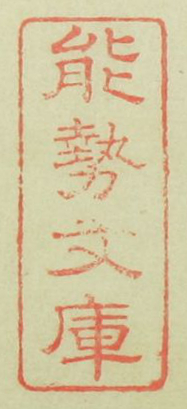 能勢文庫